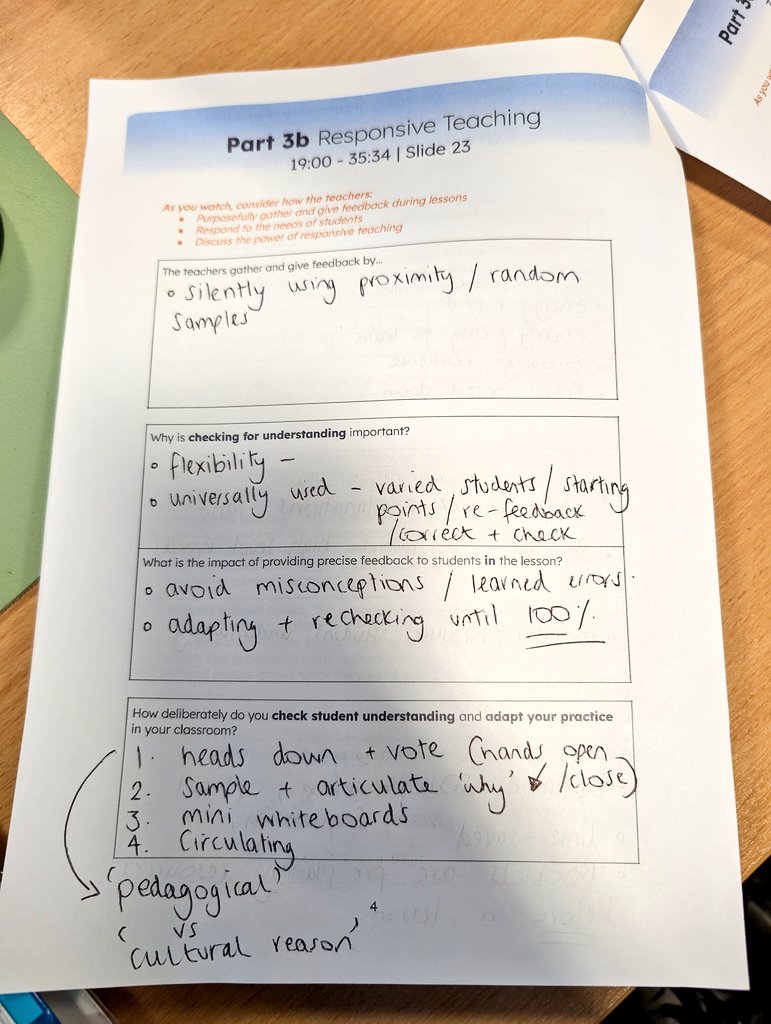 Part 3b Responsive Teaching
19:00 - 35:34 | Slide 23
As you watch, consider how the teachers:
• Purposefully gather and give feedback during lessons
• Respond to the needs of students
• Discuss the power of responsive teaching
The teachers gather and give feedback by...
• silently using proximity / random
samples
Why is checking for understanding important?
• flexibility –
• universally used – varied students / starting
points / re-feedback
/correct + check
What is the impact of providing precise feedback to students in the lesson?
• avoid misconceptions / learned errors.
• adapting + rechecking until 100%.
How deliberately do you check student understanding and adapt your practice
in your classroom?
1. heads down + vote (hands open
/close)
2. sample + articulate 'why'
3. mini whiteboards
4. Circulating
'pedagogical'
vs
'cultural reason'
4
Part 3
As you wa